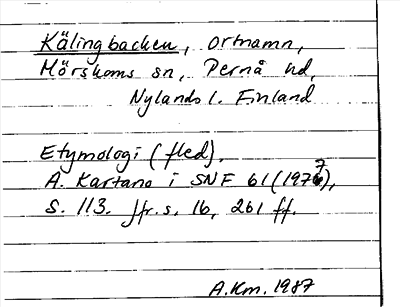 Kälingbacken, ortnamn,
Mörskoms sn, Pernå hd,
Nylands l. Finland
Etymologi (fled).
A. Kartano i SNF 61 (1977),
S. 113. Jfr. s. 16, 261 ff.
A.Km. 1987